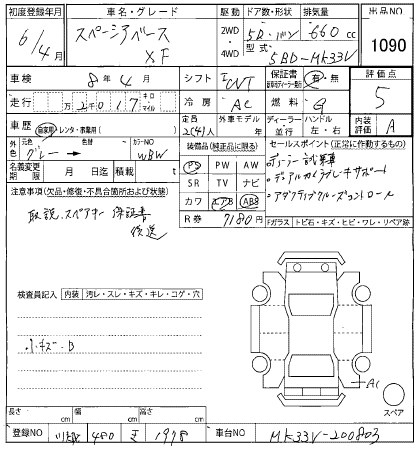 初度登録年月 車名・グレード 駆動 ドア数・形状 排気量 出品NO
6/4月 スペーシアベース XF 2WD 4WD 5D・バン 660cc 1090
型式 5BD-MK33V
車検 8年4月 シフト FCVT 保証書 有・無 評価点 5
走行 万2千017 キロ マイル 冷房 AC 燃料 G
車歴 自家用・レンタ・事業用( ) 定員 2(4)人 外車モデル 年 ディーラー・並行 ハンドル 左・右 内装評価 A
外色 元色 グレー 色替 カラーNO WBW
装備品(純正品に限る) セールスポイント(正常に作動するもの)
名義変更期限 月 日迄 積載 t
PS PW AW
SR TV ナビ
カワ エアB ABS
R券 7180円
ディーラー試乗車
・デュアルカメラブレーキサポート
・アダプティブクルーズコントロール
注意事項(欠品・修復・不具合箇所および状態)
取説、スペアキー 保証書
後送
Fガラス トビ石・キズ・ヒビ・ワレ・リペア跡
検査員記入 内装 汚レ・スレ・キズ・キレ・コゲ・穴
小キズ・B
A1
スペア
長さ cm 幅 cm 高さ cm
登録NO 480 1978 車台NO MK33V-200803